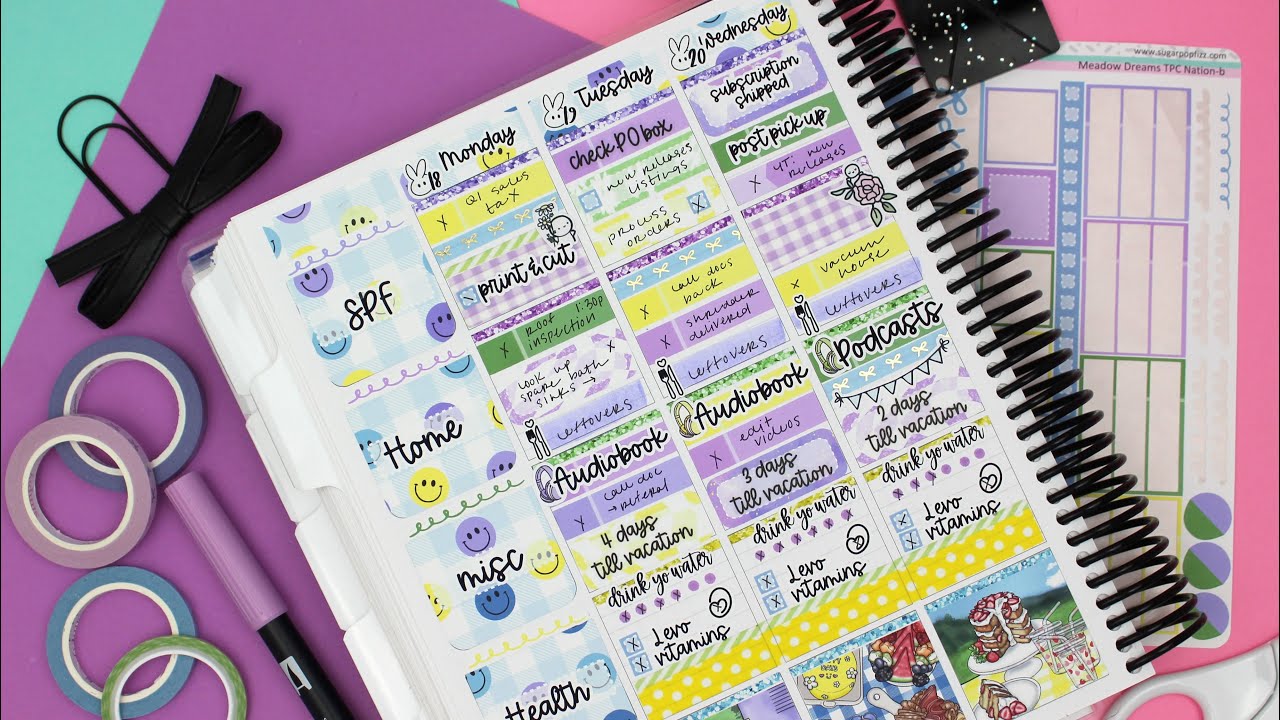 www.sugarpopfizz.com
Meadow Dreams TPC Nation-b
SPF
Home
misc
Health
18 Monday
X Q1 sales
tax
X print & cut
X Roof 1:30p
inspection
look up
spare bath
sinks →
leftovers
Audiobook
X call doc
→ referral
4 days
till vacation
drink yo water
X X X X
X Levo
X vitamins
19 Tuesday
check PO box
X new releases
listings
process
orders X
X call docs
back
X shredder
delivered
leftovers
Audiobook
X edit
videos
3 days
till vacation
drink yo water
X X X X X X
X Levo
X vitamins
20 Wednesday
subscription
shipped
post pick up
X YT: new
releases
X vacuum
house
leftovers
Podcasts
2 days
till vacation
drink yo water
X X
X Levo
X vitamins